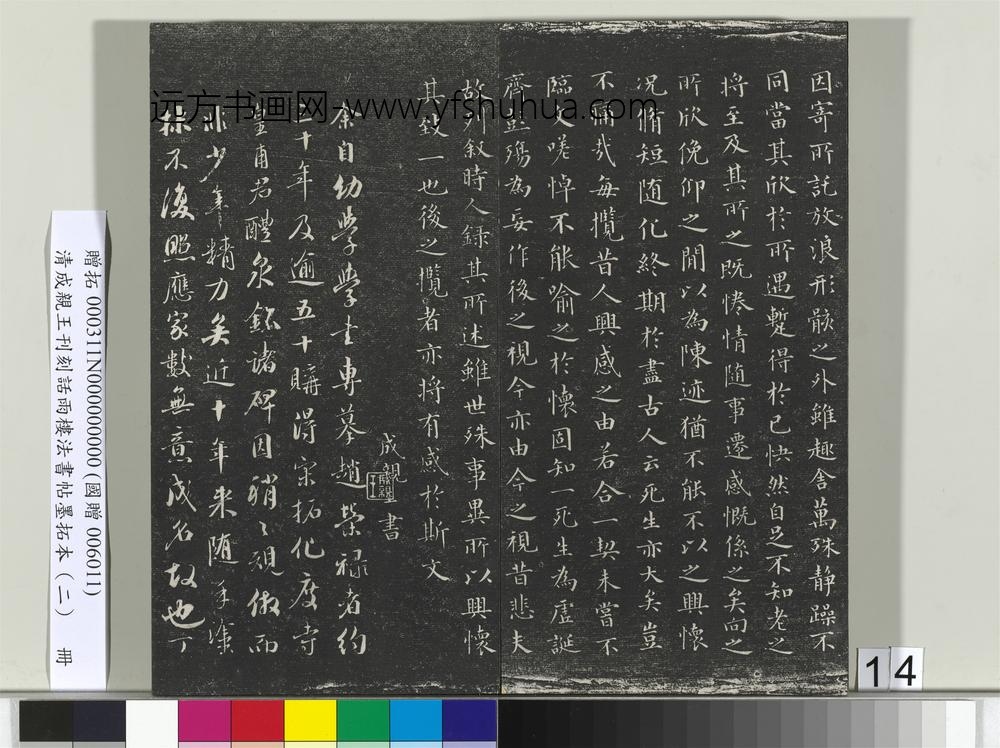 因寄所託放浪形骸之外雖趣舍萬殊静躁不
同當其欣於所遇蹔得於己快然自足不知老之
将至及其所之既惓情随事遷感慨係之矣向之
所欣俛仰之間以為陳迹猶不能不以之興懷
况脩短随化終期於盡古人云死生亦大矣豈
不痛哉每攬昔人興感之由若合一契未嘗不
臨文嗟悼不能喻之於懷固知一死生為虛誕
齊彭殤為妄作後之視今亦由今之視昔悲夫
故列叙時人録其所述雖世殊事異所以興懷
其致一也後之攬者亦将有感於斯文
成親王書
余自幼學學書專摹趙榮禄者約
十年及逾五十購得宋拓化度寺
皇甫君醴泉銘諸碑因稍々規倣而
非少年精力矣近十年来随手塗
抹不復照應家數無意成名故也丁
远方书画网-www.yfshuhua.com
贈拓 000311N000000000 (國贈 006011)
清成親王刊刻話雨樓法書帖墨拓本 (二) 冊
14